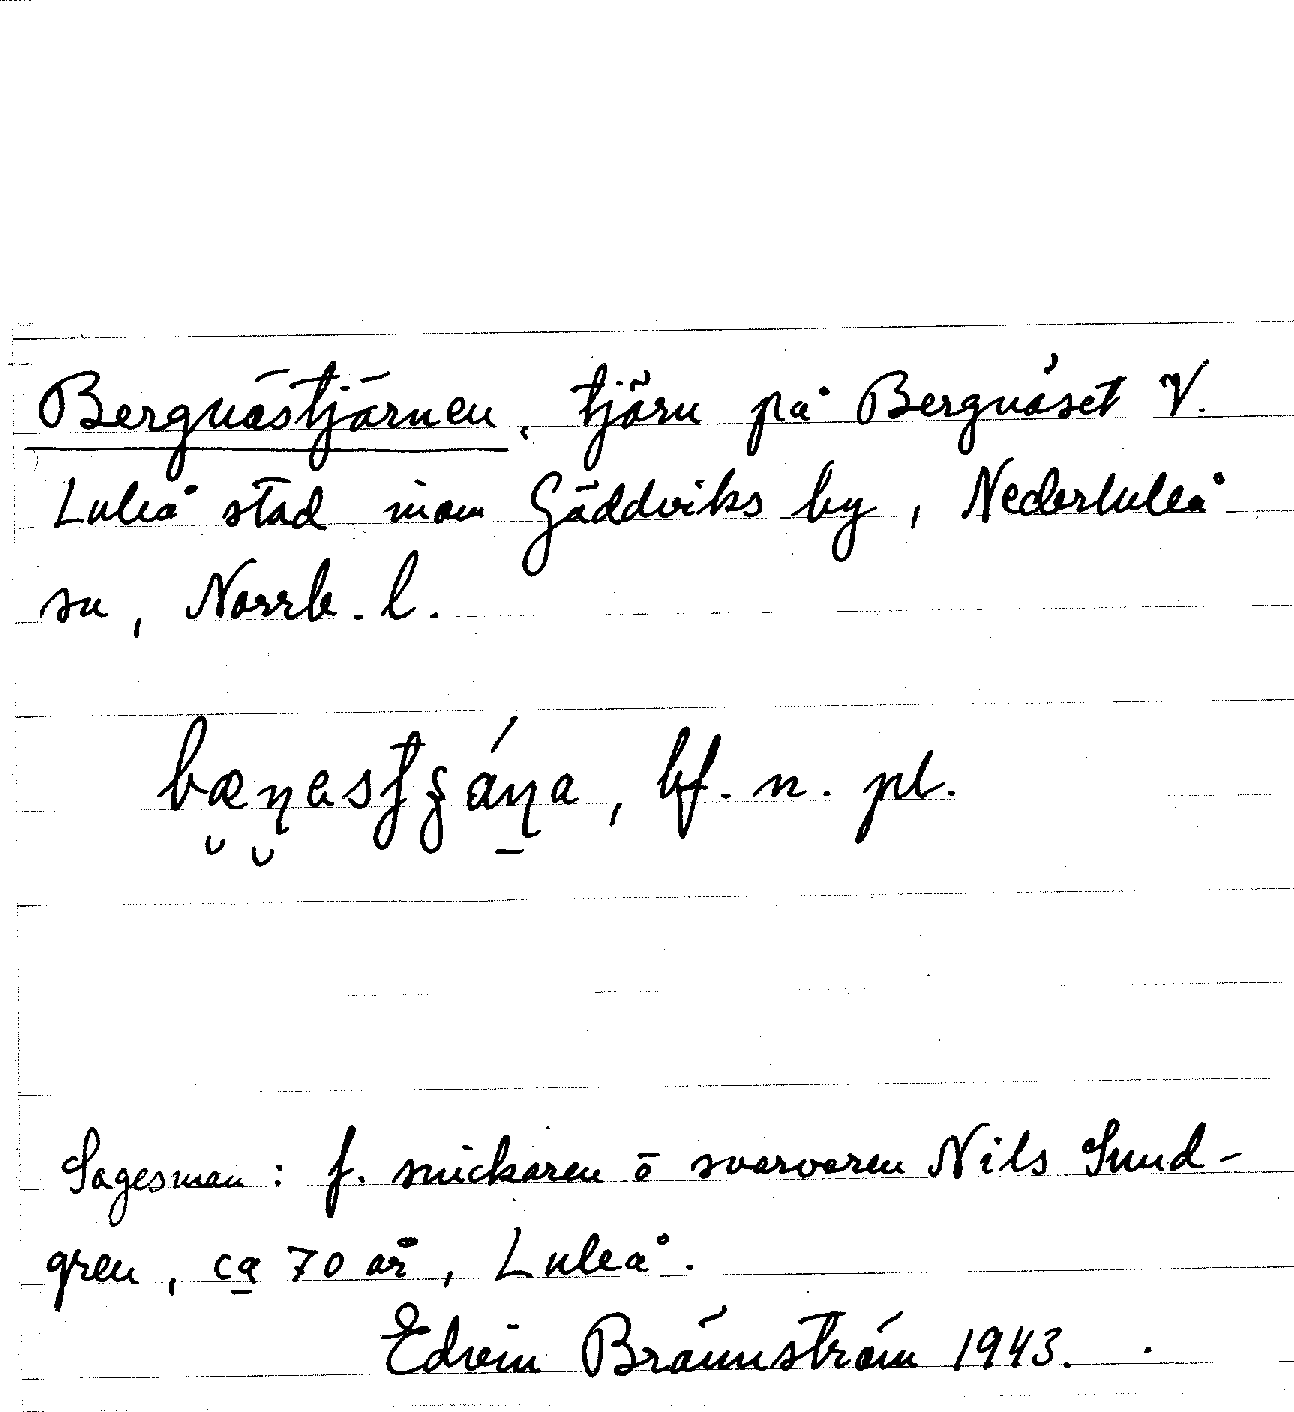 Bergnästjärnen, tjärn på Bergnäset V.
Luleå stad inom Gäddviks by, Nederluleå
sn, Norrb. l.
bf. n. pl.
Sagesman: f. snickaren o svarvaren Nils Sund-
gren, ca 70 år, Luleå.
Edvin Brännström 1943.